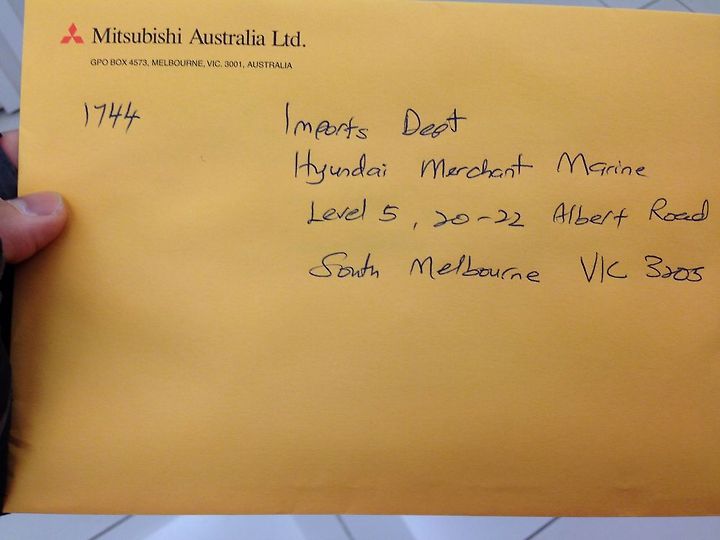 Mitsubishi Australia Ltd.
GPO BOX 4573, MELBOURNE, VIC. 3001, AUSTRALIA
1744
Imports Dept
Hyundai Merchant Marine
Level 5, 20-22 Albert Road
South Melbourne VIC 3205